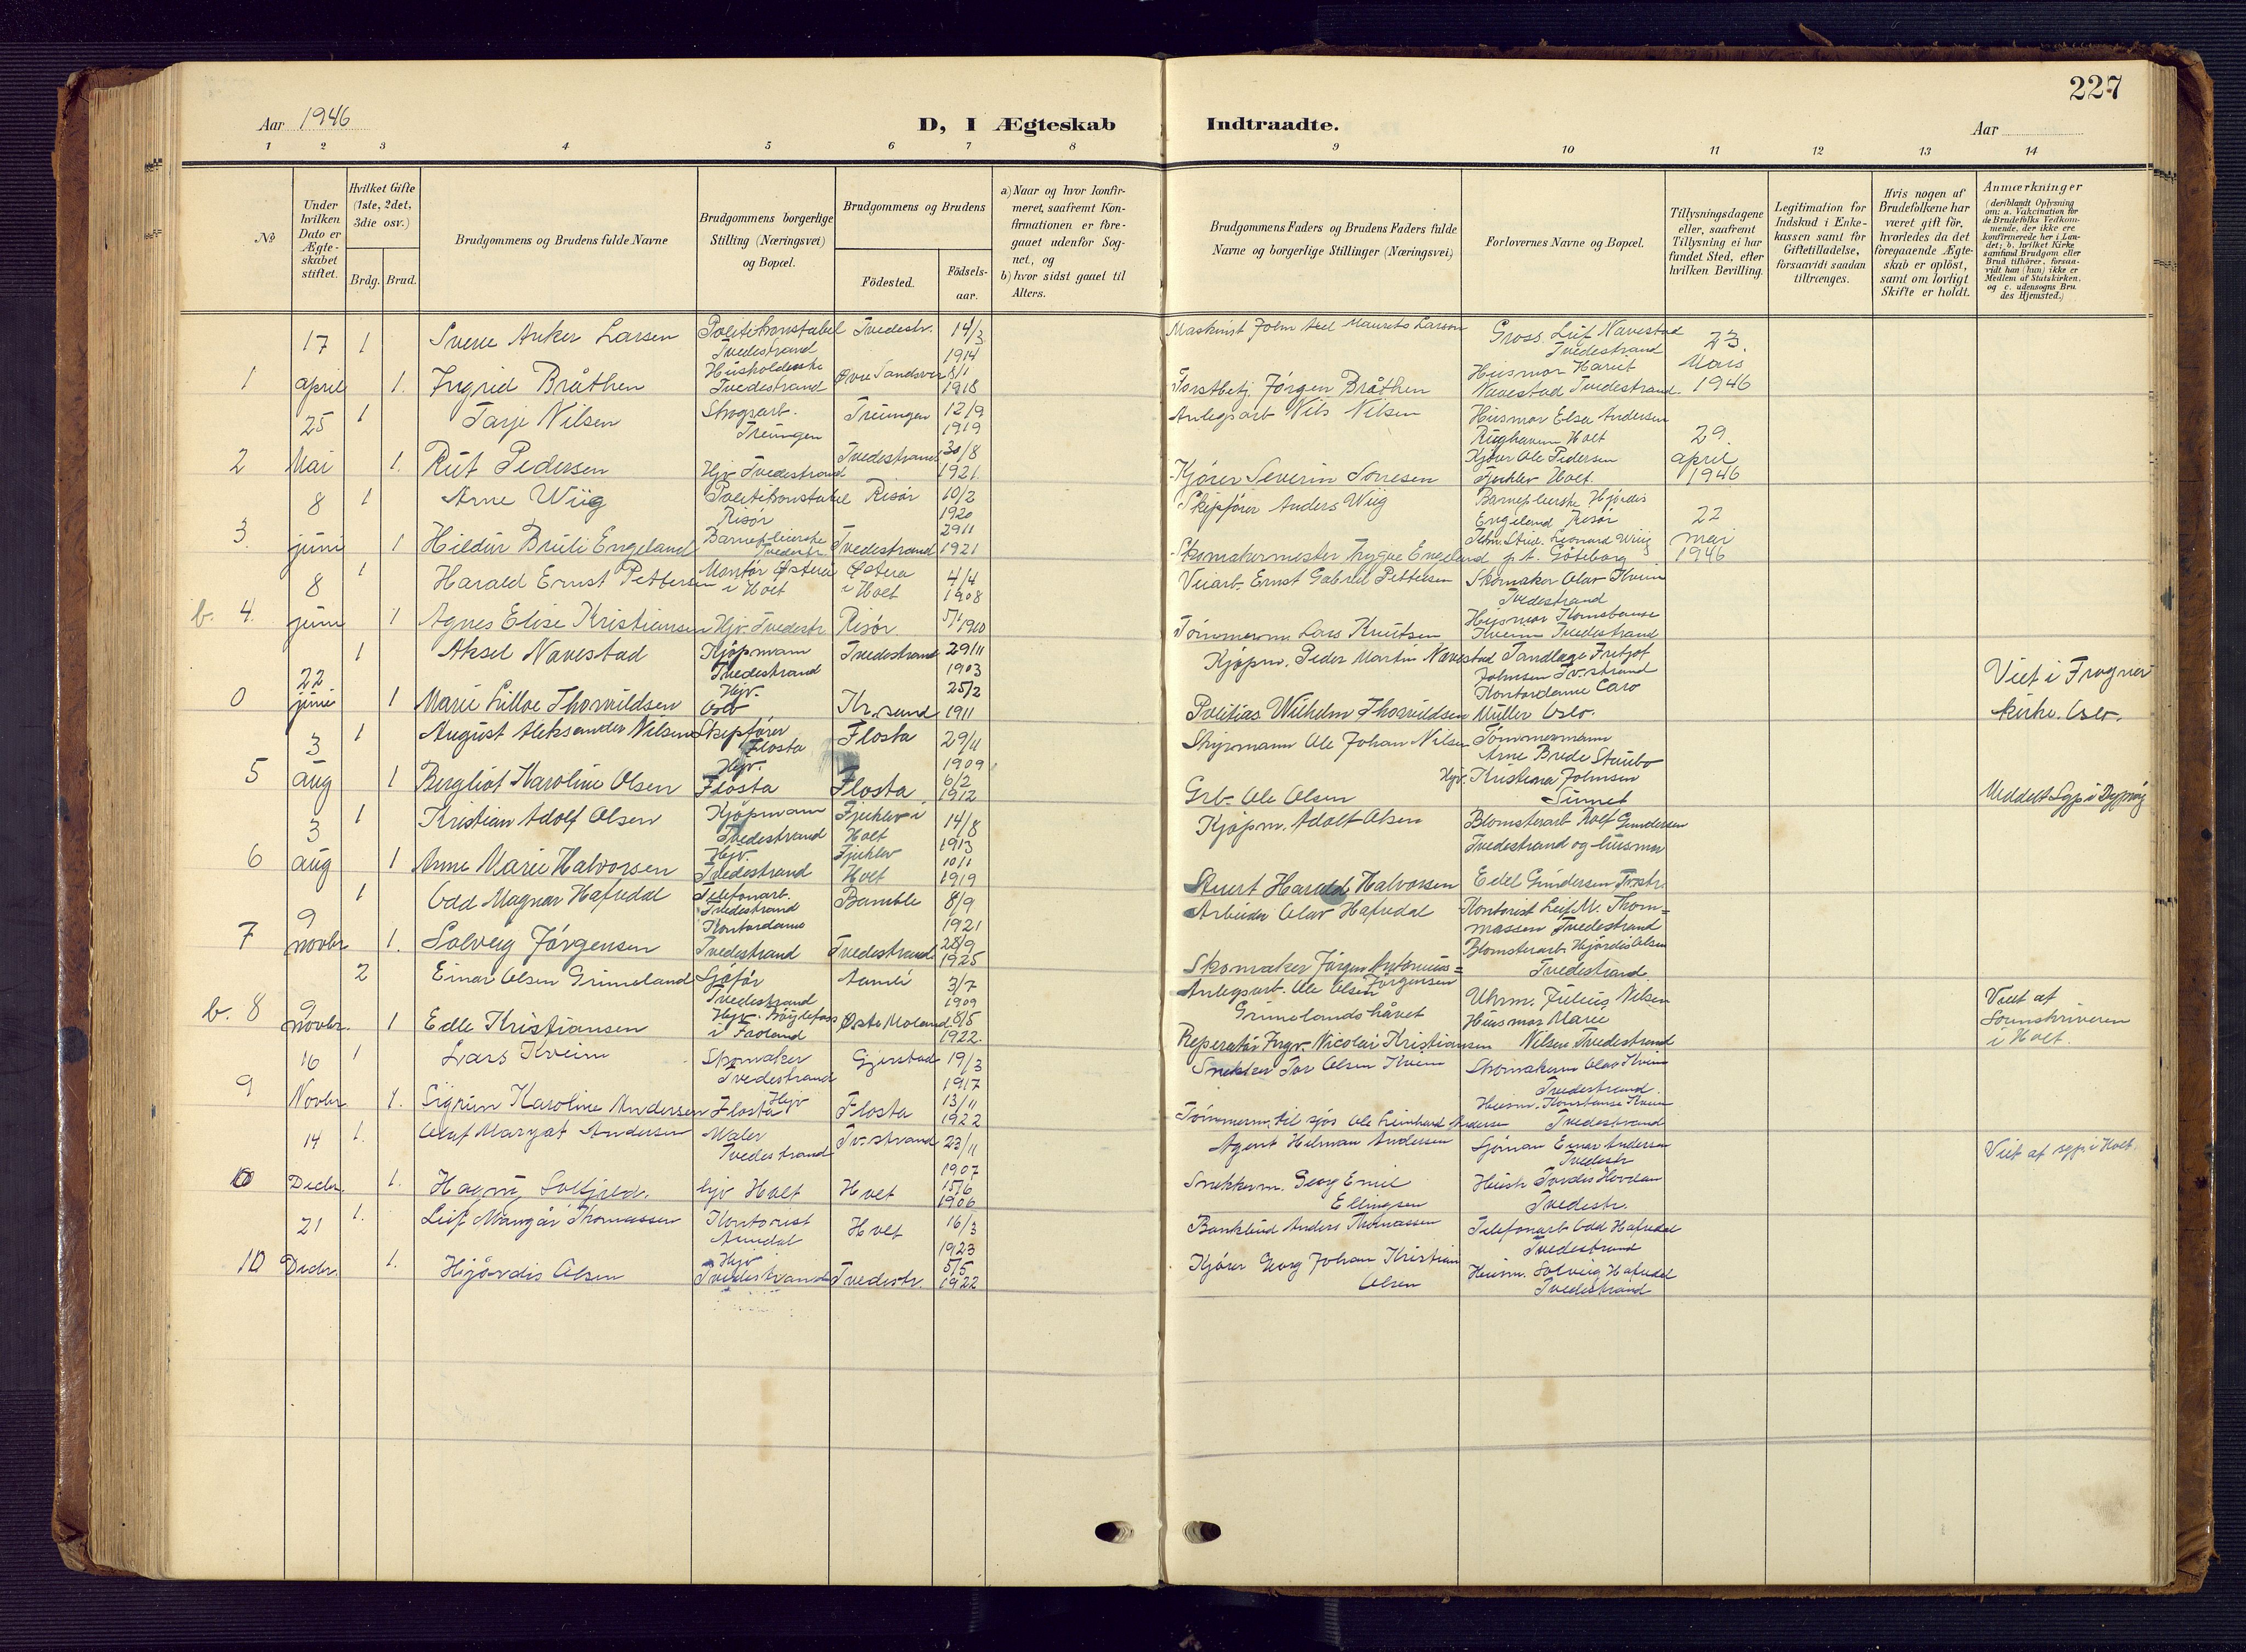 227
Aar 1946
D, I Ægteskab
Indtraadte.
Aar
1 2 3 4 5 6 7 8 9 10 11 12 13 14
No
Under hvilken Dato er Ægteskabet stiftet.
Hvilket Gifte (1ste, 2det, 3die osv.)
Brdg. Brud.
Brudgommens og Brudens fulde Navne
Brudgommens borgerlige Stilling (Næringsvei) og Bopæl.
Brudgommens og Brudens
Födested.
Födsels-aar.
a) Naar og hvor konfirmeret, saafremt Konfirmationen er foregaaet udenfor Sognet, og
b) hvor sidst gaaet til Alters.
Brudgommens Faders og Brudens Faders fulde Navne og borgerlige Stillinger (Næringsvei)
Forlovernes Navne og Bopæl.
Tillysningsdagene eller, saafremt Tillysning ei har fundet Sted, efter hvilken Bevilling.
Legitimation for Indskud i Enkekassen samt for Giftetilladelse, forsaavidt saadan tiltrænges.
Hvis nogen af Brudefolkene har været gift för, hvorledes da det foregaaende Ægteskab er oplöst, samt om lovligt Skifte er holdt.
Anmærkninger
(deriblandt Oplysning om: a. Vakcination for de Brudefolks Vedkommende, der ikke ere konfirmerede her i Landet; b. hvilket Kirkesamfund Brudgom eller Brud tilhörer, forsaavidt han (hun) ikke er Medlem af Statskirken, og c. udensogns Brudes Hjemsted.)
1 17 april
1 Sverre Anker Larsen Politikonstabel Tvedestrand Tvedestr. 14/3 1914
1. Ingrid Bråthen Husholderske Tvedestrand Øvre Sandsver 8/1 1918
Maskinist John Axel Maurits Larsen
Forstbetj. Jörgen Bråthen
Gross. Leif Navestad Tvedestrand
Husmor Harriet Navestad Tvedestrand.
23. Mars 1946
2 25 Mai
1 Tarje Nilsen Skogsarb. Treungen Treungen 12/9 1919
1. Rut Pedersen Hjv Tvedestrand Tvedestrand 30/8 1921
Anlegsarb Nils Nilsen
Kjører Severin
Husmor Elsa Andersen Holt
Kjører Ole Pedersen Fjuklev Holt.
29. april 1946
3. 8 juni
1 Arne Wiig Politikonstabel Risör Risör 10/2 1920
1 Hildur Bruli Engeland Barnepleierske Tvedestr. Tvedestrand 29/1 1921
Skipsfører Anders Wiig
Skomakermester Trygve Engeland
Barnepleierske Hjørdis Engeland Risör
Stud. Leonard Wiig p.t. Göteborg
22 mai 1946
b. 4. 8 juni
1 Harald Ernst Pettersen Montör Østerå i Holt Østerå i Holt 4/4 1908
1 Agnes Elise Kristiansen Hjv. Tvedestr Risör
Veiarb. Ernst Gabriel Pettersen
Tömmerm. Lars Knutsen
Skomaker Olav Kveim Tvedestrand
Husmor Konstanse Kveim Tvedestrand
0 22 juni
1 Aksel Navestad Kjøpmann Tvedestrand Tvedestrand 29/11 1903
1 Marie Lilloe Thorvildsen Hjv. Oslo Kr.sund 25/2 1911
Kjøpm. Peder Martin Navestad
Politias. Wilhelm Thorvildsen
Tandlæge Fritjof Johnsen Tv.strand
Kontordame Caro Müller Oslo.
Viet i Frogner kirke. Oslo.
5 3 aug
1 August Aleksander Nilsen Skipsfører Flosta Flosta 29/11 1909
1 Bergliot Karoline Olsen Hjv. Flosta Flosta 6/2 1912
Styrmann Ole Johan Nilsen
Grb. Ole Olsen
Tømmermann Arne Brede Stuibo
Hjv. Kristiena Johnsen
6 3 aug
1 Kristian Adolf Olsen Kjöpmann Tvedestrand Fjuklev i Holt 14/8 1913
1 Anne Marie Halvorsen Hjv. Tvedestrand Fjuklev Holt 10/1 1919
Kjøpm. Adolf Olsen
Stuert Harald Halvorsen
Blomsterarb Rolf Gundersen Tvedestrand og husmor
Edel Gundersen Tv.str.
7 9 novbr
1 Odd Magnar Hafredal Telefonarb. Tvedestrand Bamble 8/9 1921
1. Solveig Jörgensen Kontordame Tvedestrand Tvedestrand 28/9 1925
Arbeider Olav Hafredal
Skomaker Jörgen Antonius= Jörgensen
Kontorist Leif M. Thom=massen Tvedestrand
Blomsterarb. Hjördis Olsen Tvedestrand
b. 8 9 novbr.
2 Einar Olsen Grimeland Sjåför Tvedestrand Aamli 3/7 1909
1 Edle Kristiansen Hjv. Bøylefoss i Froland Øste Moland 8/5 1922.
Anlegsarb. Ole Olsen Grimelandshåvet
Reperatör Ingv. Nicolai Kristiansen
Uhrm. Julius Nilsen
Husmor Marie Nilsen Tvedestrand
Viet af Sorenskriveren i Holt.
9 16 Novbr
1 Lars Kveim Skomaker Tvedestrand Gjerstad 19/3 1917
1. Sigrun Karoline Andersen Hjv Flosta Flosta 13/11 1922
Snekker Tor Olsen Kveim
Tömmerm. til sjøs Ole Leinhard Andersen
Skomakerm Olav Kveim Tvedestrand.
Husm. Konstanse Kveim Tvedestrand
10 14 Decbr.
1. Olaf Margat Andersen Maler Tvedestrand Tv.strand 23/11 1907
1. Hagny Solfjeld. hjv Holt Holt 15/6 1906
Agent Hilman Andersen
Snekkerm. Georg Emil Ellingsen
Sjöman Einar Andersen Tvedestr
Tvedestr.
Viet af sgp. i Holt.
10 21 Decbr.
1. Leif Mangår Thomassen Kontorist Arendal Holt 16/3 1923
1. Hjördis Olsen Hjv Tvedestrand Tvedestr. 5/5 1922
Anders Thomassen
Kjører Georg Johan Kristian Olsen
Telefonarb Odd Hafredal Tvedestrand
Husm. Solveig Hafredal Tvedestrand